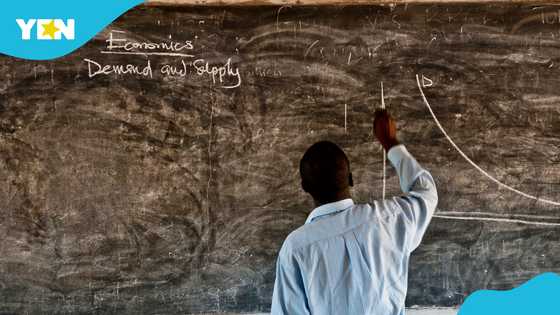 YEN
Economics
Demand and Supply
D